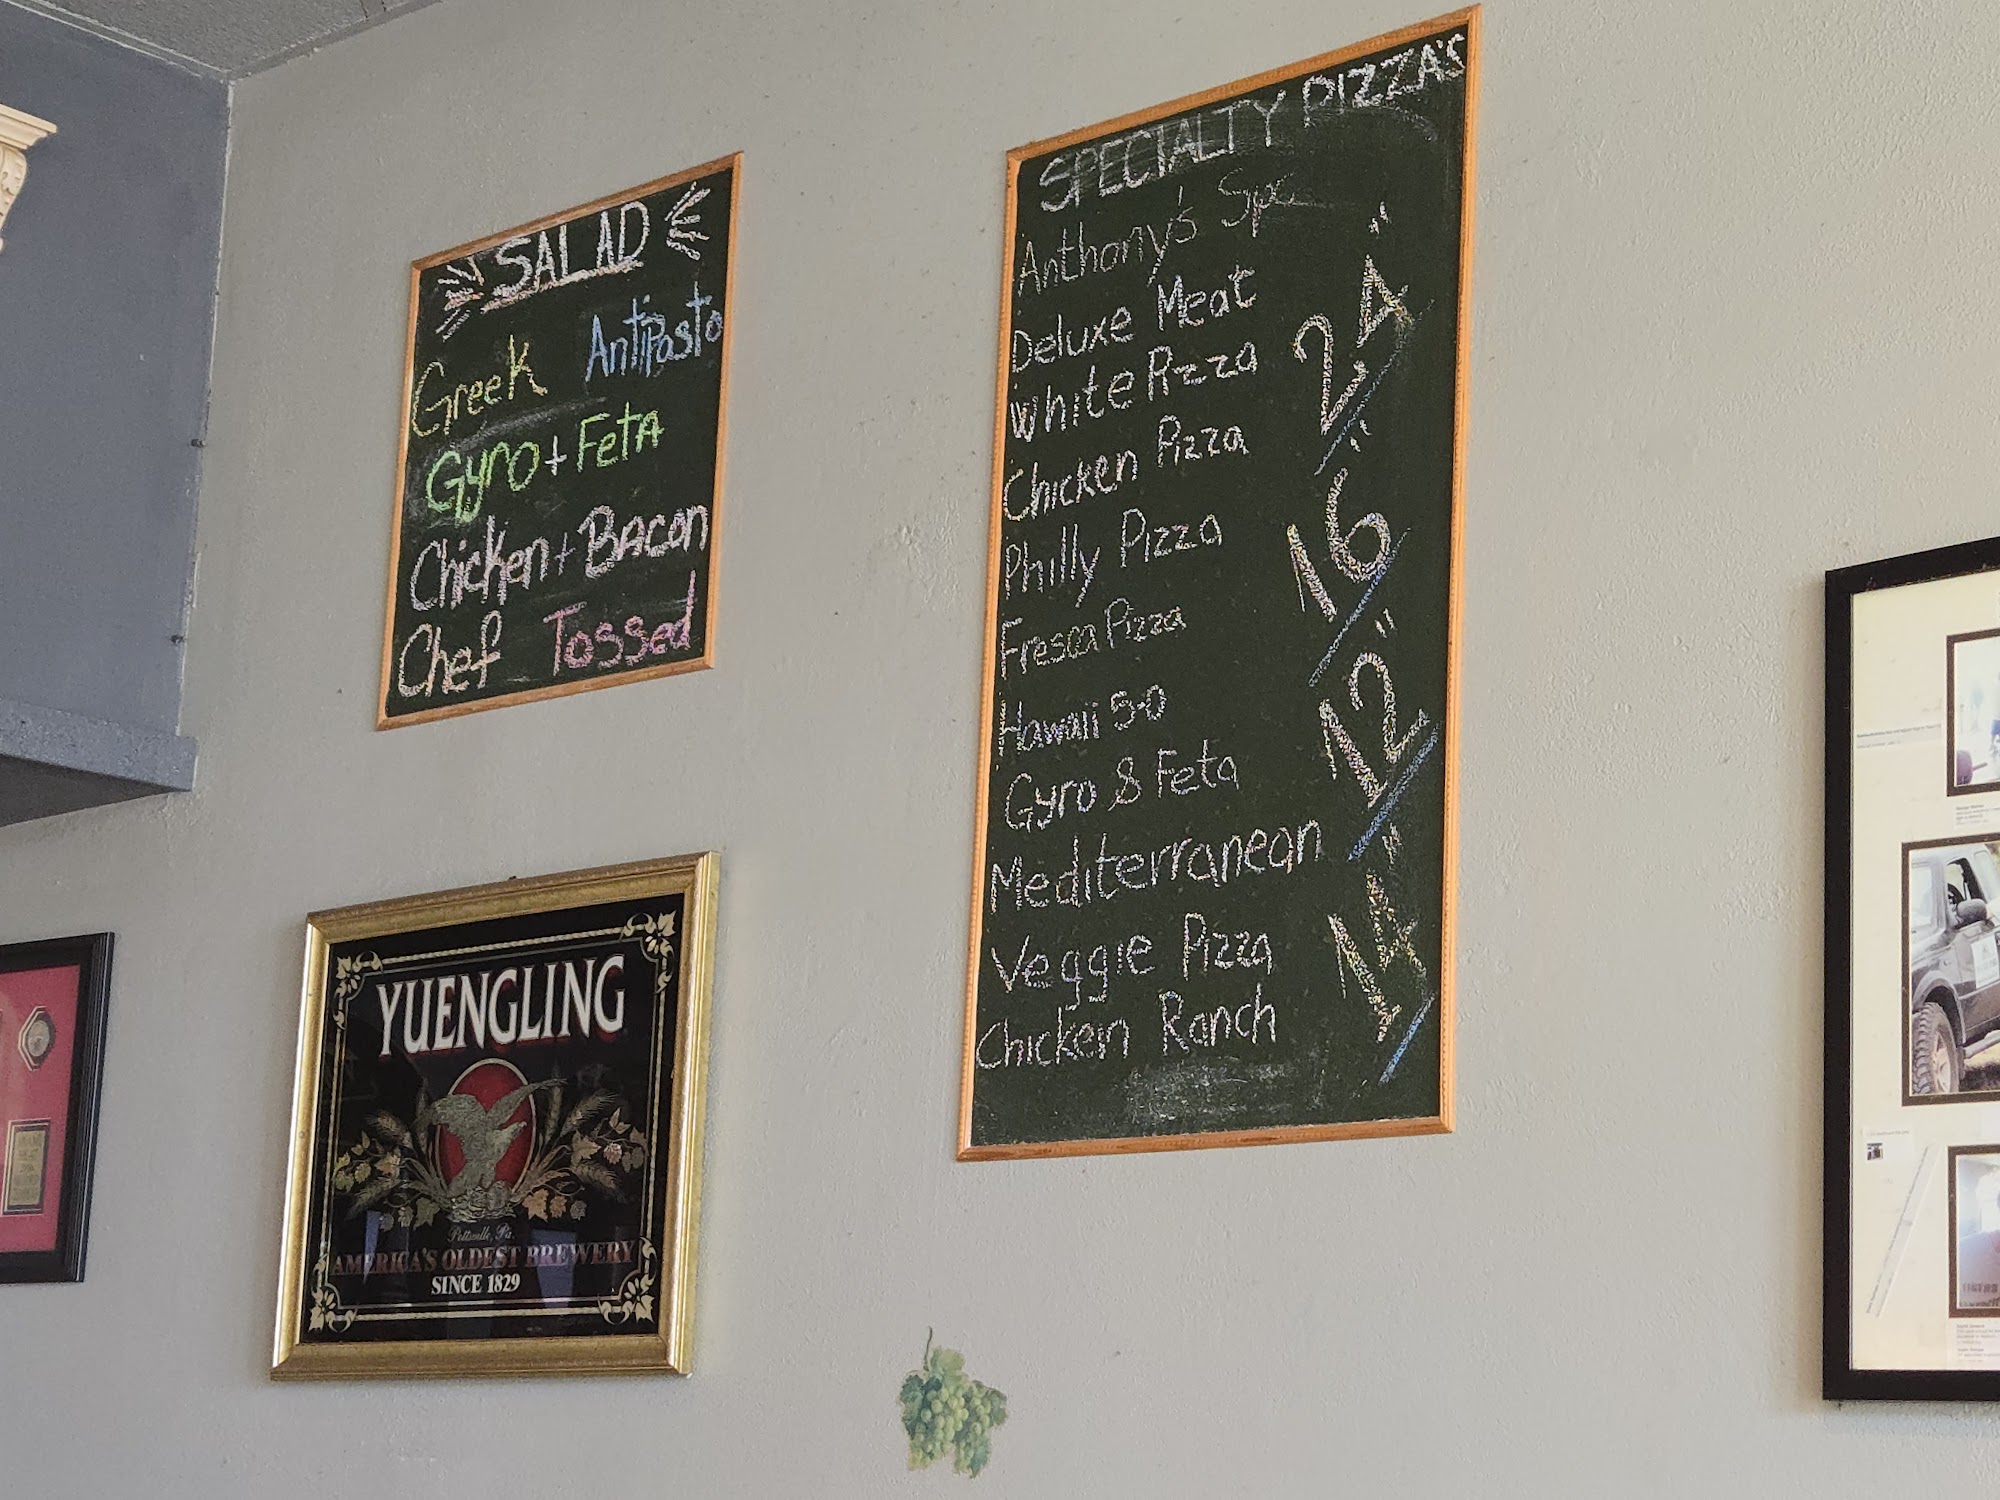 SALAD
Greek Antipasto
Gyro + Feta
Chicken + Bacon
Chef Tossed
SPECIALTY PIZZA'S
Anthony's Spc
Deluxe Meat
White Pizza
Chicken Pizza
Philly Pizza
Fresca Pizza
Hawaii 5-0
Gyro & Feta
Mediterranean
Veggie Pizza
Chicken Ranch
24"
16"
12"
14"
YUENGLING
Pottsville, Pa.
AMERICA'S OLDEST BREWERY
SINCE 1829